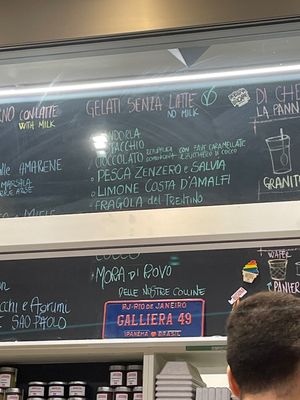 NO CON LATTE
WITH MILK
GELATI SENZA LATTE
NO MILK
DI CHE
LA PANN
MANDORLA
PISTACCHIO
CIOCCOLATO
CON FAVE CARAMELLATE
PESCA ZENZERO E SALVIA
LIMONE COSTA D'AMALFI
FRAGOLA del TRENTINO
lle AMARENE
MARSALA
MIELE
GRANIT
COCCO
MORA DI ROVO
DELLE NOSTRE COLLINE
cchi e Agrumi
E SAO PAOLO
RJ-RIO DE JANEIRO
GALLIERA 49
IPANEMA BRASIL
WAFER
PANIE